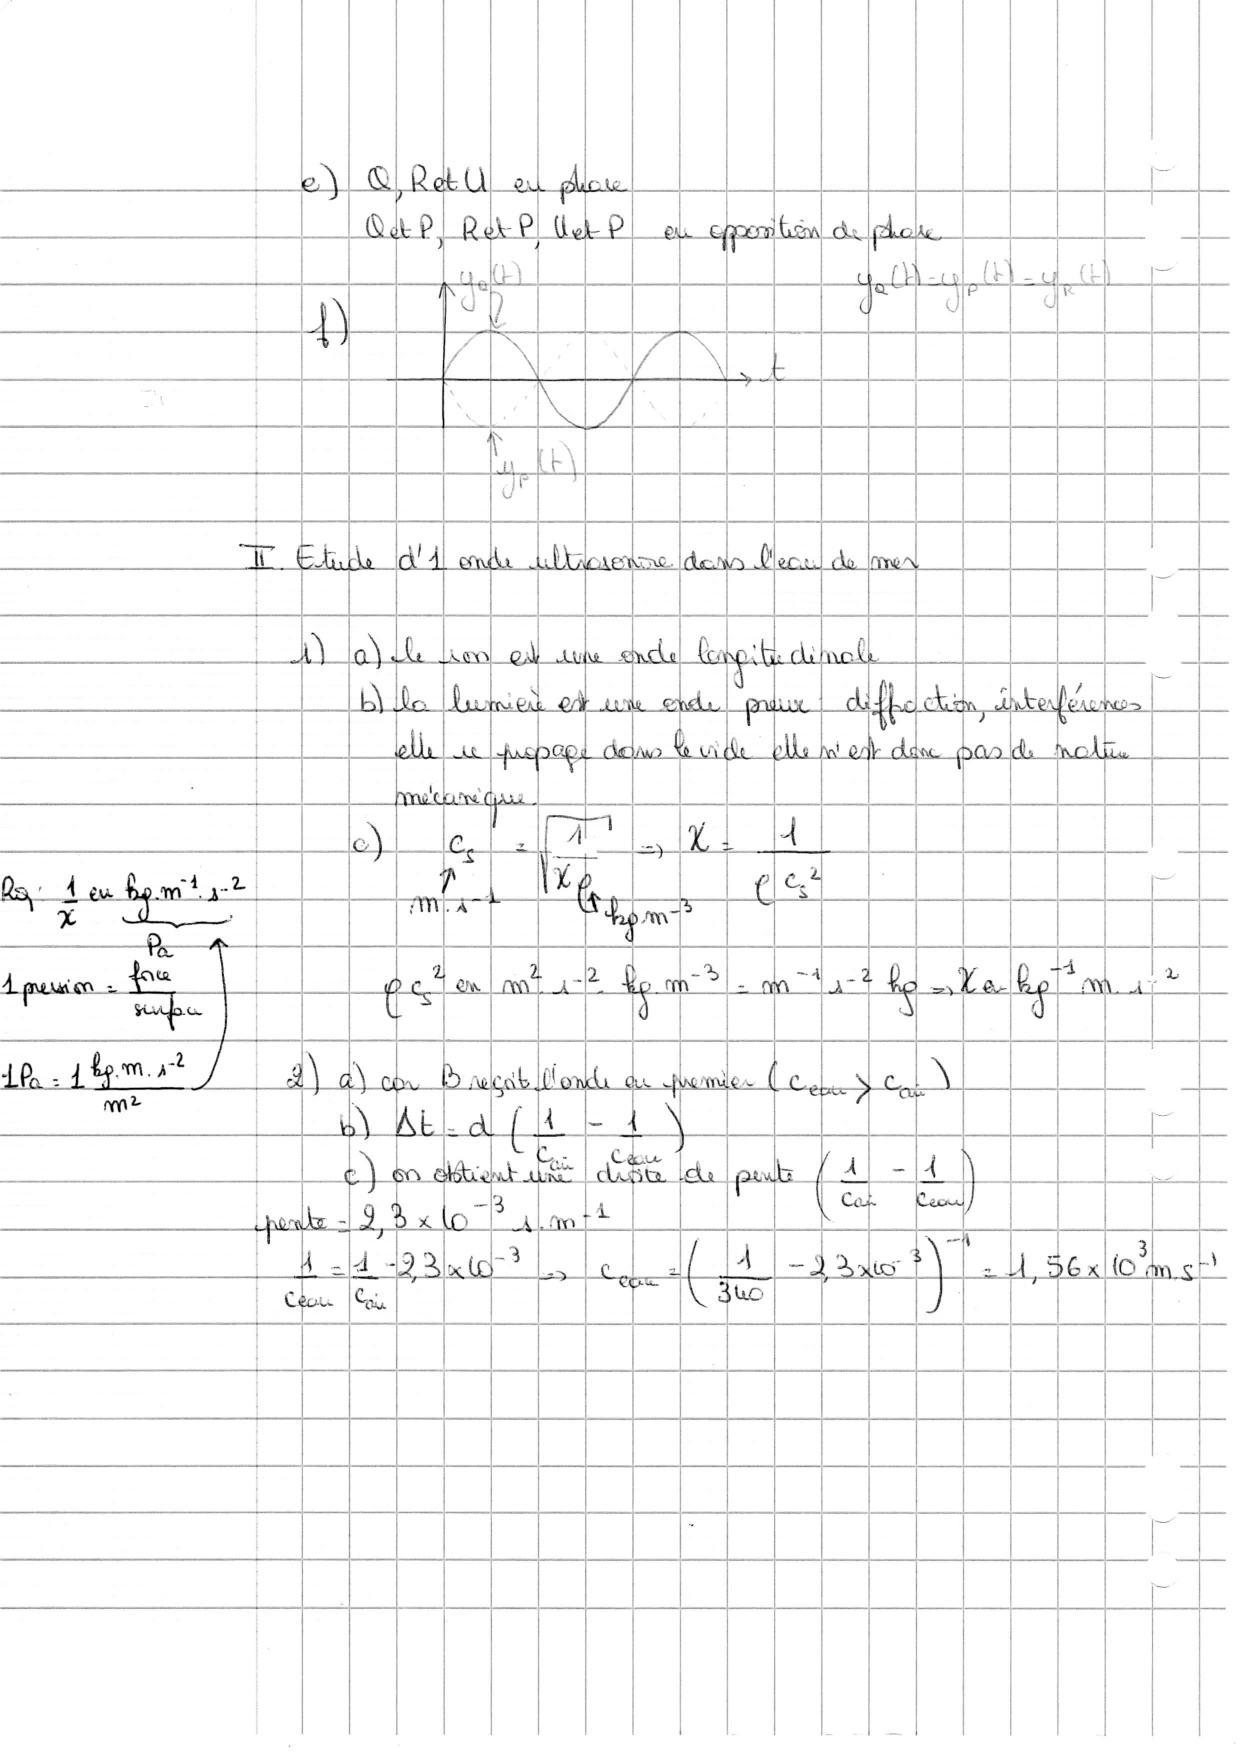 e) Q, R et U en phase
Q et P, R et P, U et P en opposition de phase
y_Q(t) = y_P(t) = y_R(t)
y_Q(t)
f)
t
y_P(t)
II. Etude d'1 onde ultrasonore dans l'eau de mer
1) a) le son est une onde longitudinale
b) la lumière est une onde preuve : diffraction, interférences
elle se propage dans le vide elle n'est donc pas de nature
mécanique.
c) c_s = √(1/(χρ)) => χ = 1/(ρ c_s²)
m.s⁻¹ kg.m⁻³
Rq : 1/χ en kg.m⁻¹.s⁻²
Pa
1 pression = force/surface
ρ c_s² en m².s⁻².kg.m⁻³ = m⁻¹ s⁻² kg => χ en kg⁻¹ m.s²
1 Pa = 1 kg.m.s⁻²/m²
2) a) car B reçoit l'onde en premier (c_eau > c_air)
b) Δt = d (1/c_air - 1/c_eau)
c) on obtient une droite de pente (1/c_air - 1/c_eau)
pente = 2,3 × 10⁻³ s.m⁻¹
1/c_eau = 1/c_air - 2,3 × 10⁻³ => c_eau = (1/340 - 2,3 × 10⁻³)⁻¹ = 1,56 × 10³ m.s⁻¹